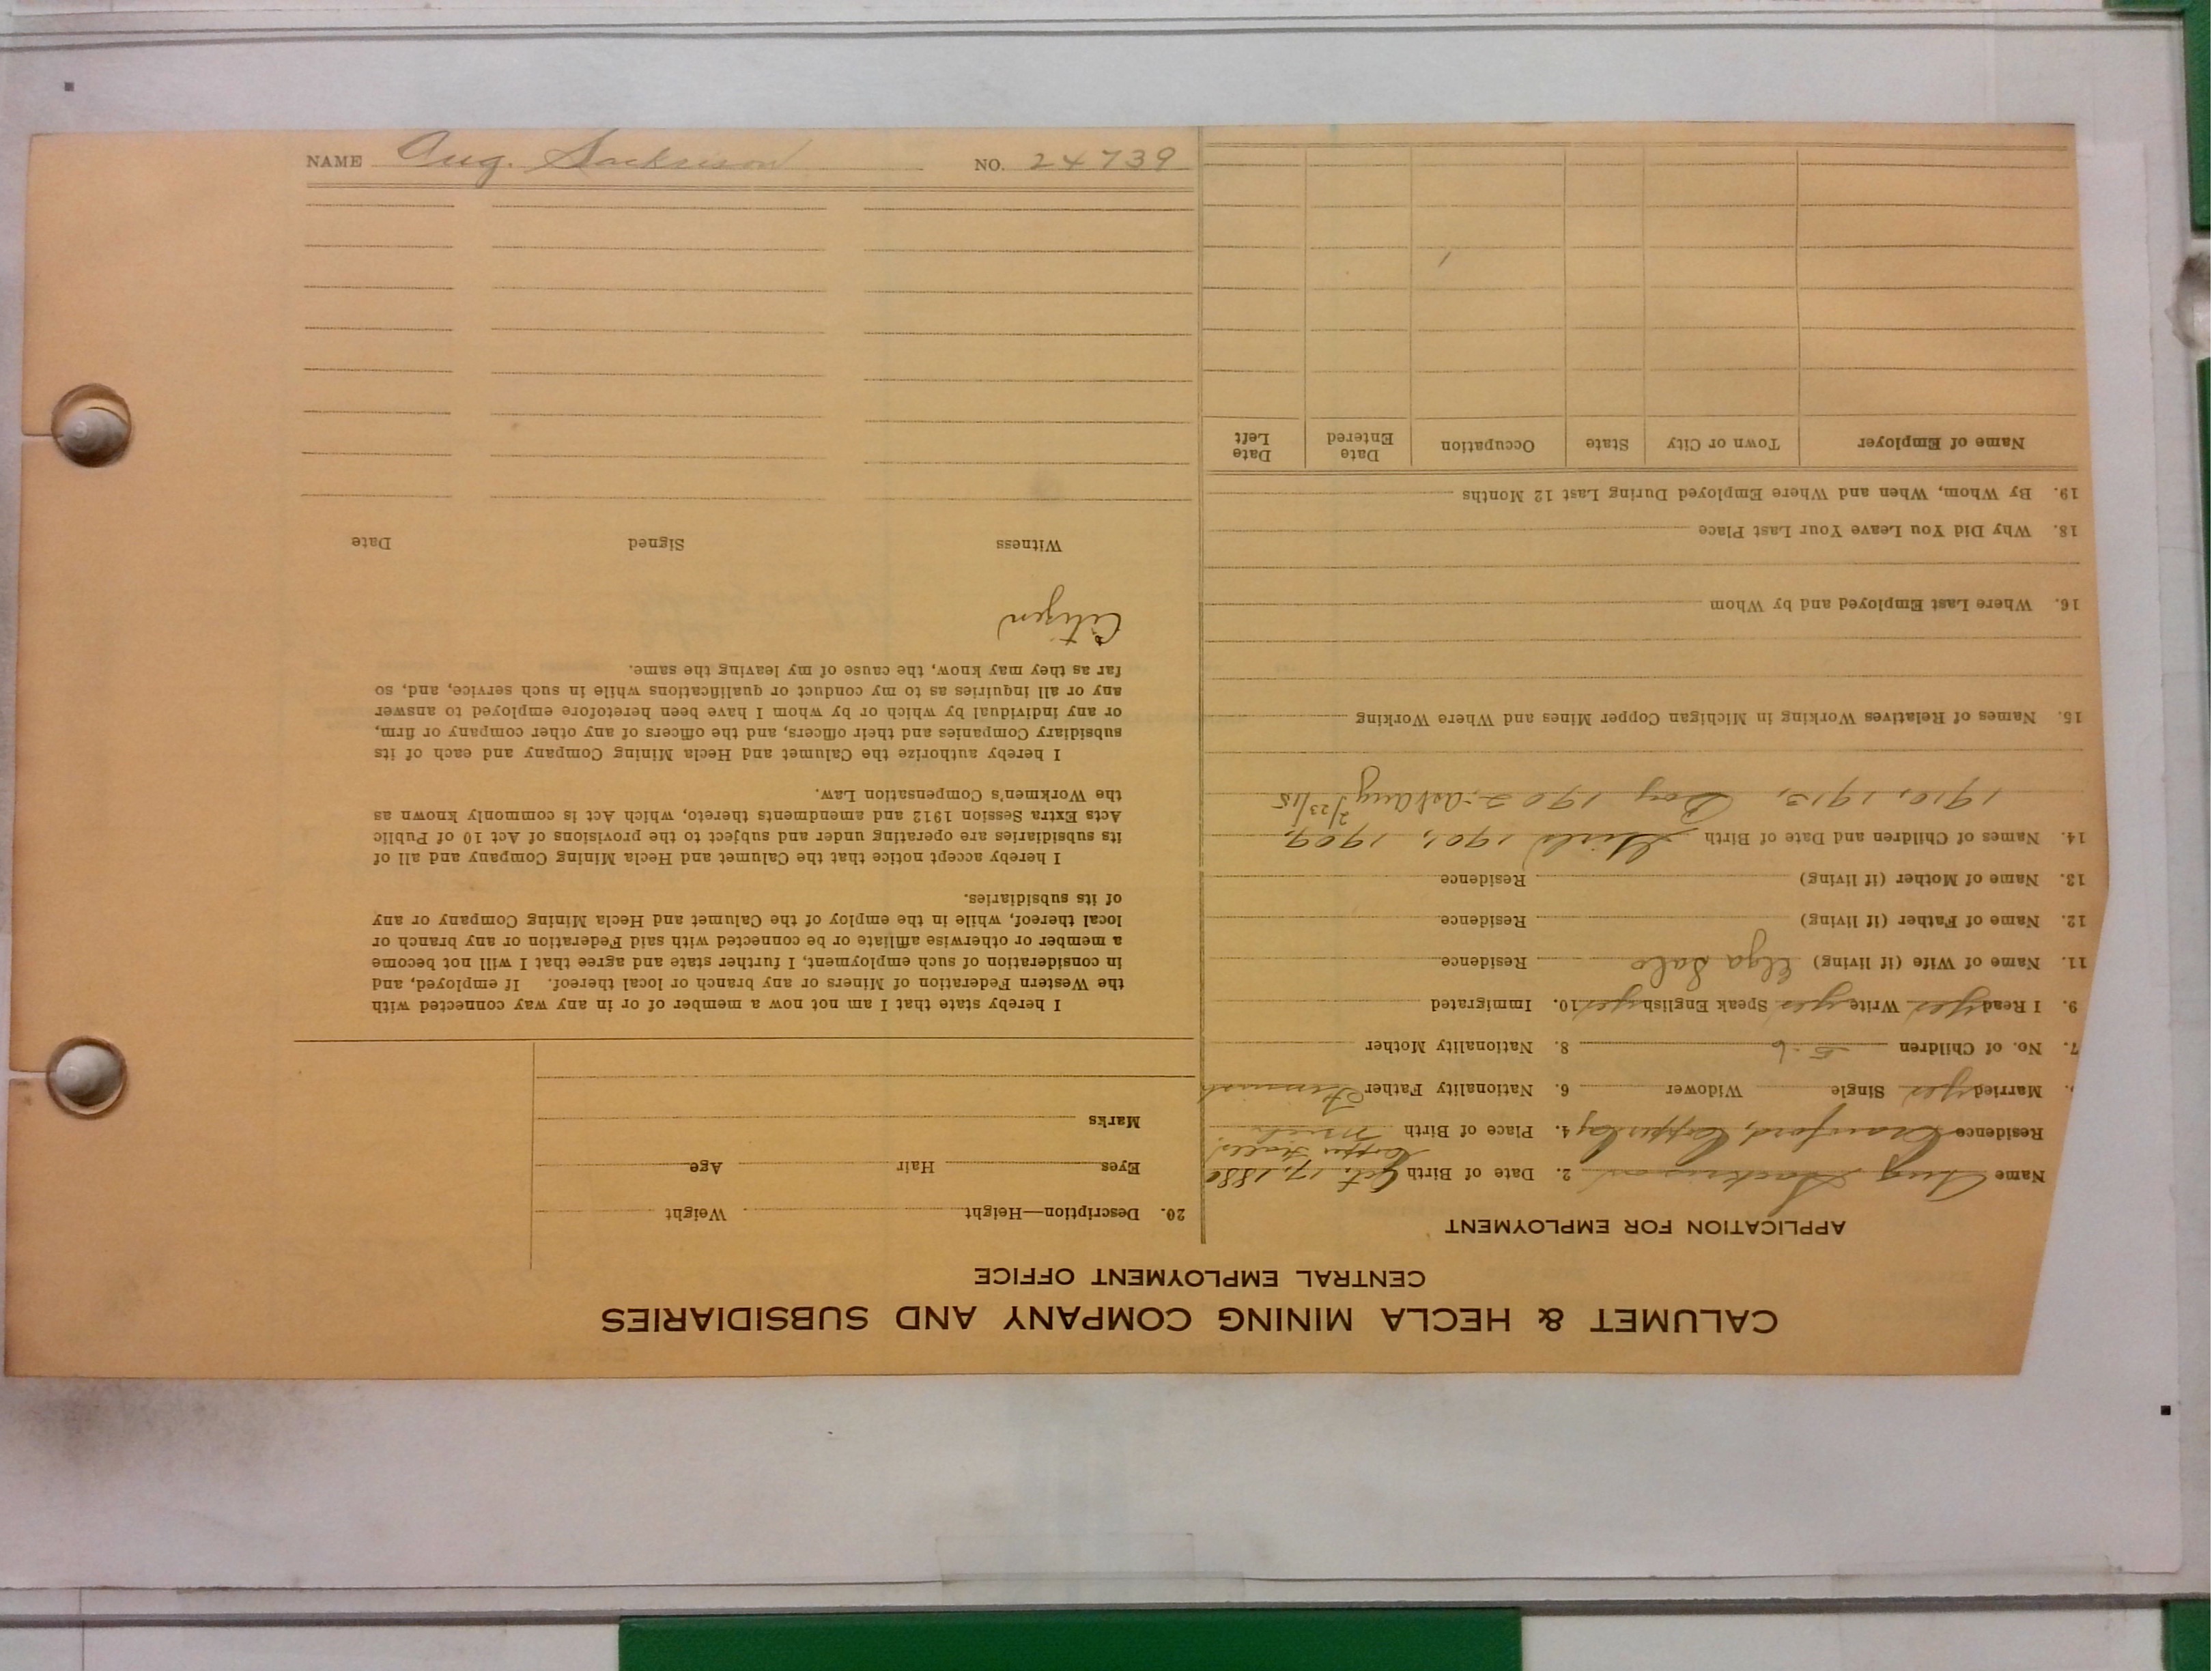 CALUMET & HECLA MINING COMPANY AND SUBSIDIARIES
CENTRAL EMPLOYMENT OFFICE
APPLICATION FOR EMPLOYMENT
Name Aug Sackrison 2. Date of Birth Oct. 17, 1880
Residence Crawford, Copper City 4. Place of Birth Copper Falls, Mich
Married yes Single Widower 6. Nationality Father Finnish
7. No. of Children 5-6 8. Nationality Mother
9. I Read yes Write yes Speak English yes 10. Immigrated
11. Name of Wife (if living) Elga Salo Residence
12. Name of Father (if living) Residence
13. Name of Mother (if living) Residence
14. Names of Children and Date of Birth Girls 1901, 1909,
1910, 1913, Boy 1902, Aug 2/23/15
15. Names of Relatives Working in Michigan Copper Mines and Where Working
16. Where Last Employed and by Whom
18. Why Did You Leave Your Last Place
19. By Whom, When and Where Employed During Last 12 Months
Name of Employer Town or City State Occupation Date Entered Date Left
20. Description—Height Weight
Eyes Hair Age
Marks
I hereby state that I am not now a member of or in any way connected with
the Western Federation of Miners or any branch or local thereof. If employed, and
in consideration of such employment, I further state and agree that I will not become
a member or otherwise affiliate or be connected with said Federation or any branch or
local thereof, while in the employ of the Calumet and Hecla Mining Company or any
of its subsidiaries.
I hereby accept notice that the Calumet and Hecla Mining Company and all of
its subsidiaries are operating under and subject to the provisions of Act 10 of Public
Acts Extra Session 1912 and amendments thereto, which Act is commonly known as
the Workmen's Compensation Law.
I hereby authorize the Calumet and Hecla Mining Company and each of its
subsidiary Companies and their officers, and the officers of any other company or firm,
or any individual by which or by whom I have been heretofore employed to answer
any or all inquiries as to my conduct or qualifications while in such service, and, so
far as they may know, the cause of my leaving the same.
Citizen
Witness Signed Date
NAME Aug. Sackrison NO. 24739